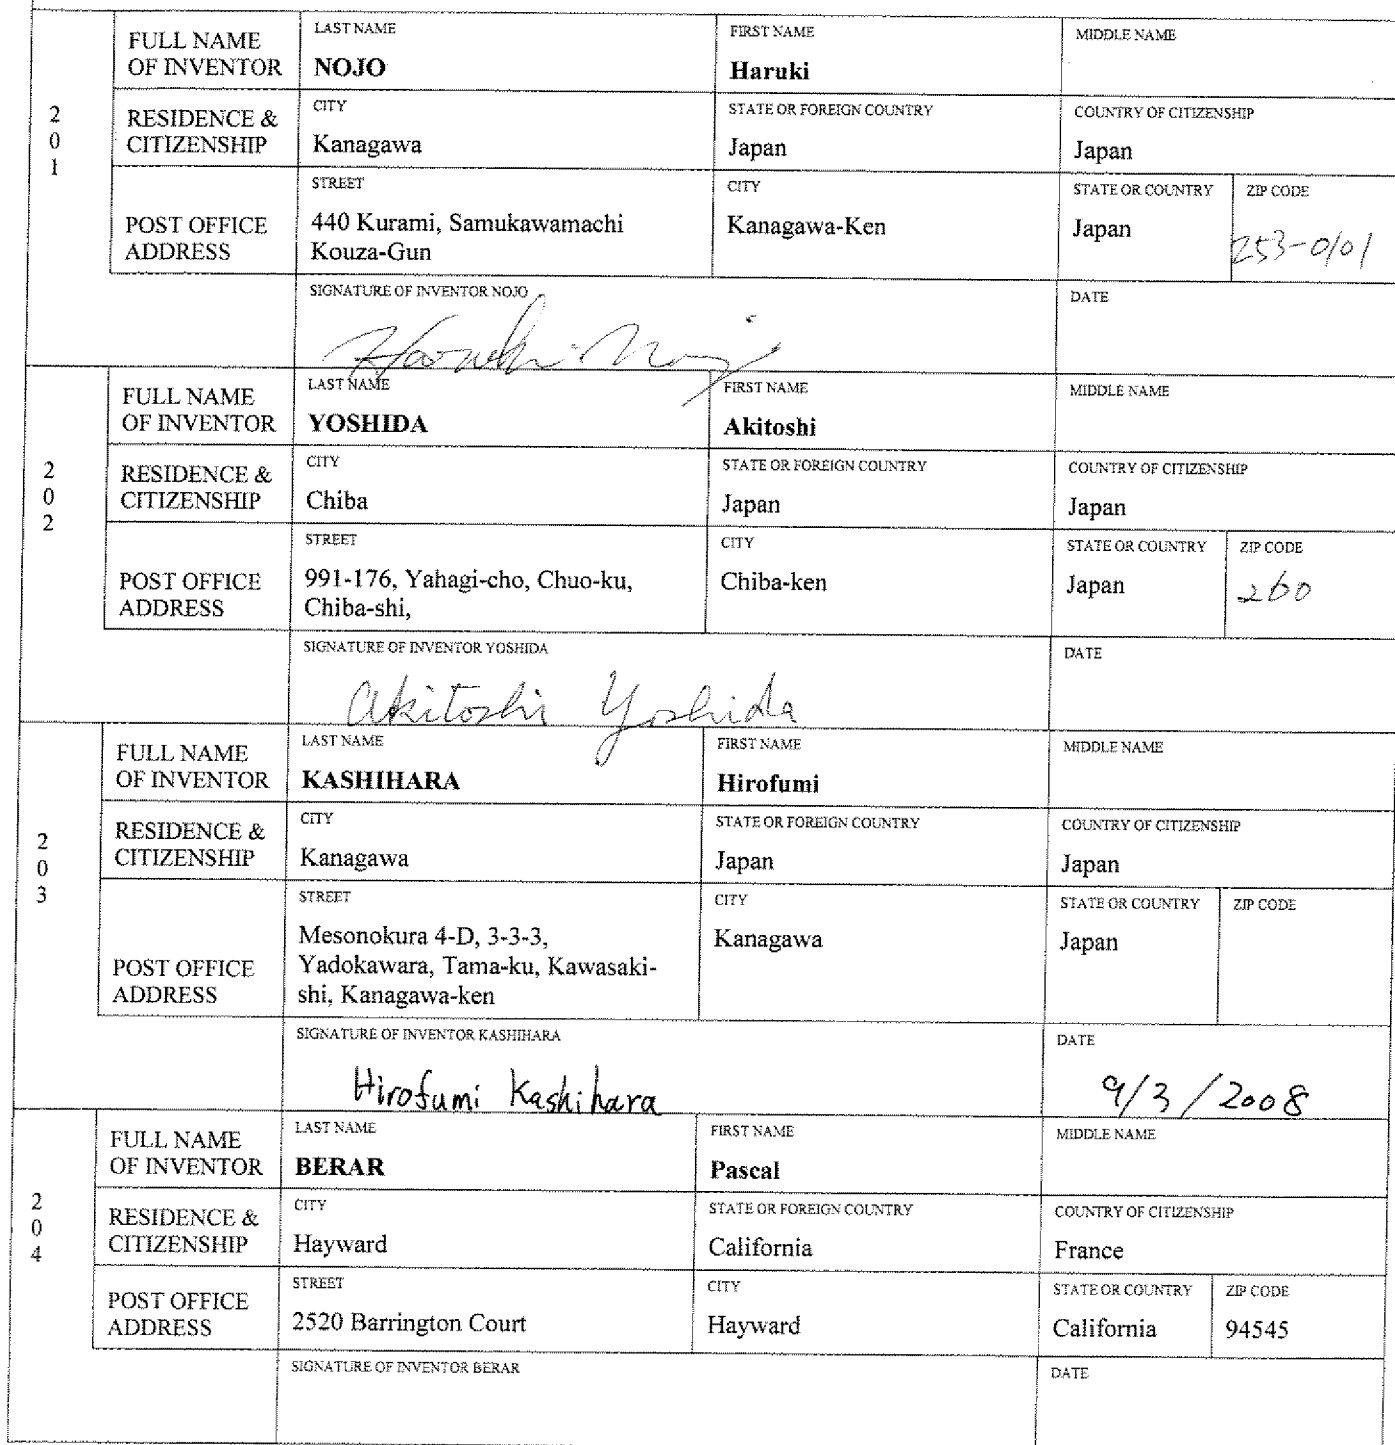 FULL NAME OF INVENTOR
LAST NAME
NOJO
FIRST NAME
Haruki
MIDDLE NAME
201
RESIDENCE & CITIZENSHIP
CITY
Kanagawa
STATE OR FOREIGN COUNTRY
Japan
COUNTRY OF CITIZENSHIP
Japan
POST OFFICE ADDRESS
STREET
440 Kurami, Samukawamachi
Kouza-Gun
CITY
Kanagawa-Ken
STATE OR COUNTRY
Japan
ZIP CODE
253-0101
SIGNATURE OF INVENTOR NOJO
Haruki Nojo
DATE
FULL NAME OF INVENTOR
LAST NAME
YOSHIDA
FIRST NAME
Akitoshi
MIDDLE NAME
202
RESIDENCE & CITIZENSHIP
CITY
Chiba
STATE OR FOREIGN COUNTRY
Japan
COUNTRY OF CITIZENSHIP
Japan
POST OFFICE ADDRESS
STREET
991-176, Yahagi-cho, Chuo-ku,
Chiba-shi,
CITY
Chiba-ken
STATE OR COUNTRY
Japan
ZIP CODE
260
SIGNATURE OF INVENTOR YOSHIDA
Akitoshi Yoshida
DATE
FULL NAME OF INVENTOR
LAST NAME
KASHIHARA
FIRST NAME
Hirofumi
MIDDLE NAME
203
RESIDENCE & CITIZENSHIP
CITY
Kanagawa
STATE OR FOREIGN COUNTRY
Japan
COUNTRY OF CITIZENSHIP
Japan
POST OFFICE ADDRESS
STREET
Mesonokura 4-D, 3-3-3,
Yadokawara, Tama-ku, Kawasaki-
shi, Kanagawa-ken
CITY
Kanagawa
STATE OR COUNTRY
Japan
ZIP CODE
SIGNATURE OF INVENTOR KASHIHARA
Hirofumi Kashihara
DATE
9/3/2008
FULL NAME OF INVENTOR
LAST NAME
BERAR
FIRST NAME
Pascal
MIDDLE NAME
204
RESIDENCE & CITIZENSHIP
CITY
Hayward
STATE OR FOREIGN COUNTRY
California
COUNTRY OF CITIZENSHIP
France
POST OFFICE ADDRESS
STREET
2520 Barrington Court
CITY
Hayward
STATE OR COUNTRY
California
ZIP CODE
94545
SIGNATURE OF INVENTOR BERAR
DATE